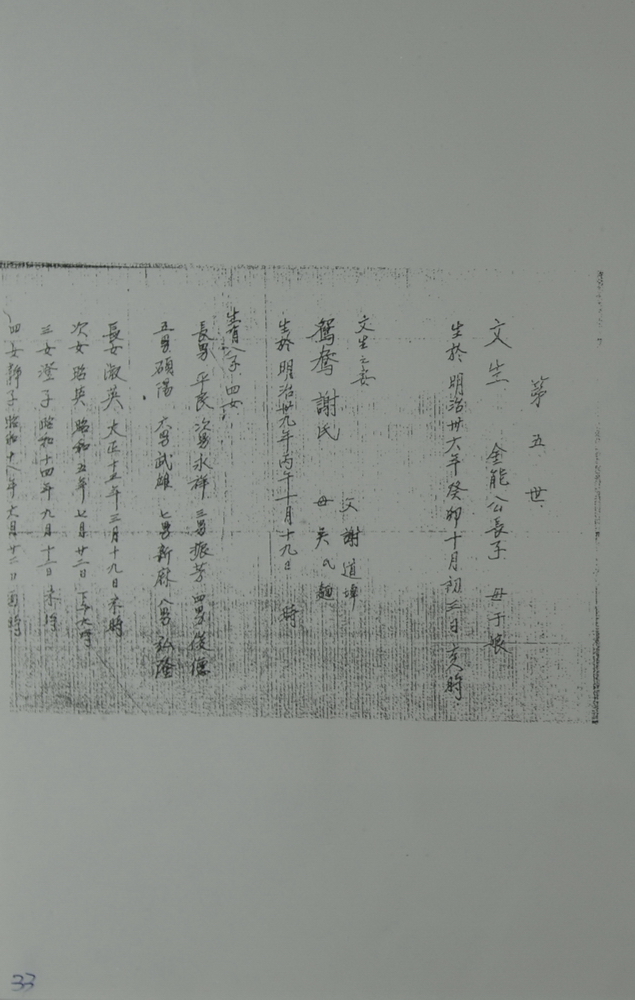 第五世
文生 金能公長子 母于娘
生於明治卅六年癸卯十月初三日亥時
文生之妻
鴛鴦謝氏 父謝道埠 母吳氏麵
生於明治卅九年丙午十月十九日 時
生育八子四女
長男平民 次男永祥 三男振芳 四男俊德
五男碩陽 六男武雄 七男新麻 八男弘隆
長女淑英 大正十五年三月十九日未時
次女昭英 昭和五年七月廿二日下午六時
三女澄子 昭和十四年九月十三日未時
四女靜子 昭和十八年六月廿二日酉時
33